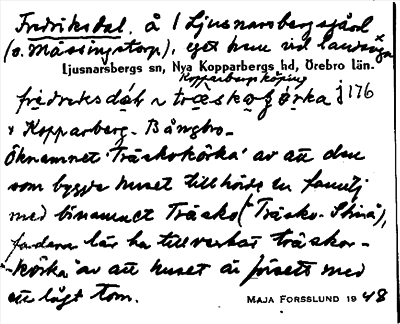 Fredriksdal, å 1 Ljusnarsbergsgård
(o. Mässingstorp), eget hem vid landsväga
Ljusnarsbergs sn, Nya Kopparbergs hd, Örebro län.
Kopparbergs köping
fredriksdal ~ träskokörka j176
v Kopparberg - Bångbro -
Öknamnet 'Träskokörka' av att den
som byggde huset tillhörde en familj
med binamnet Träsko ("Träsko-Stina"),
fadern lär ha tillverkat träskor -
- körka av att huset är försett med
ett lågt torn.
MAJA FORSSLUND 1948